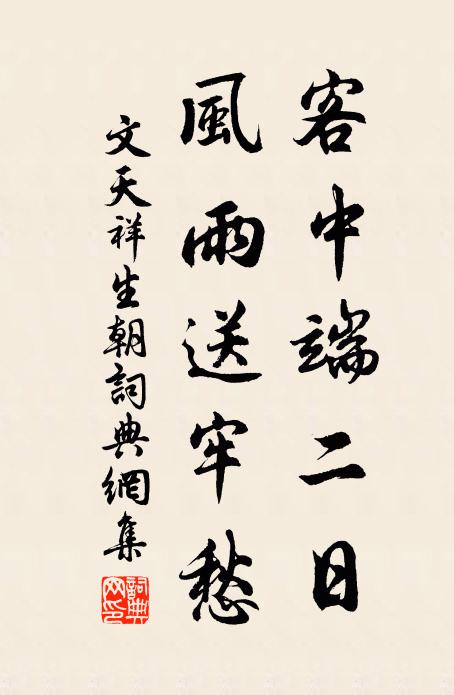 客中端二日
風雨送牢愁
文天祥生朝詞典網集
詞典网印